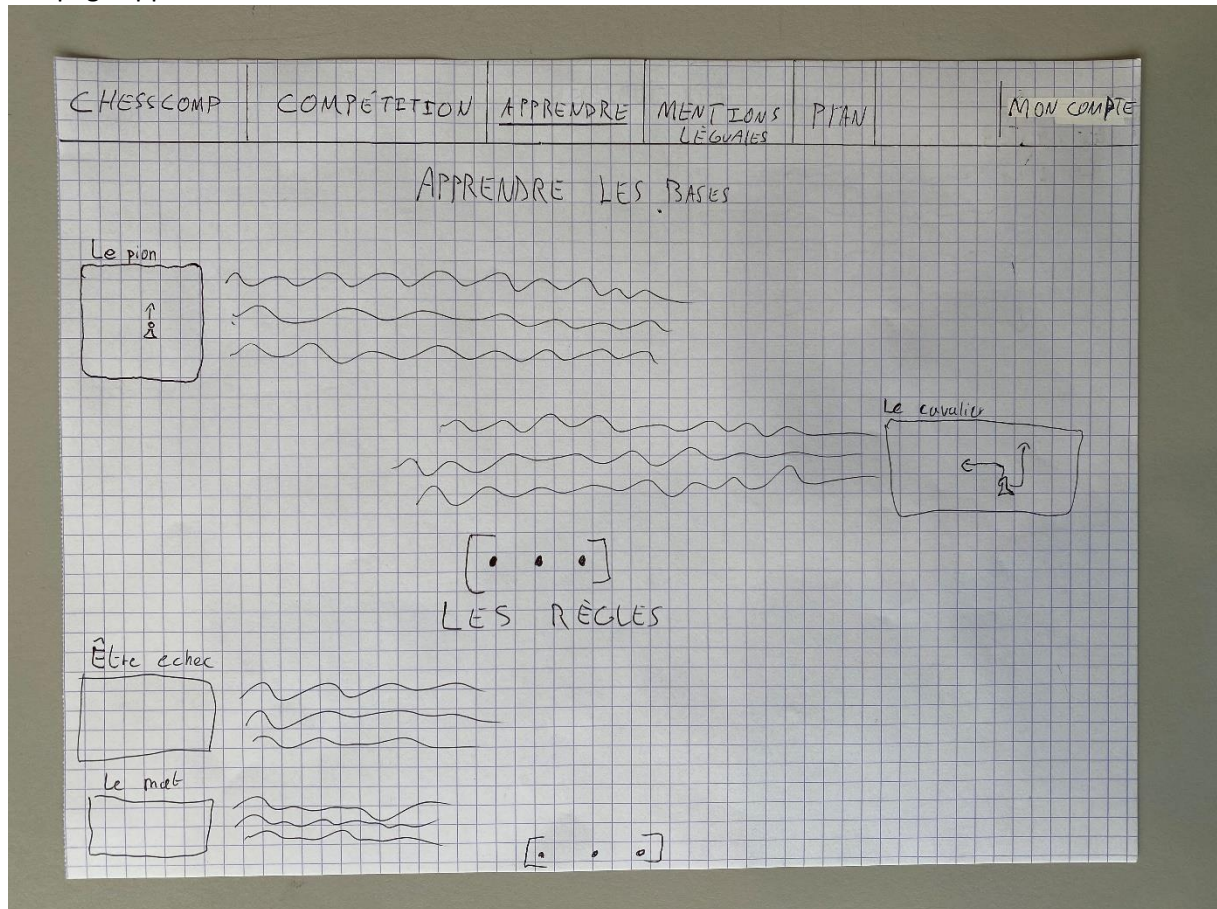 CHESSCOMP COMPÉTITION APPRENDRE MENTIONS LÉGUALES PLAN MON COMPTE
APPRENDRE LES BASES
Le pion
Le cavalier
[...]
LES RÈGLES
Être echec
Le mat
[...]